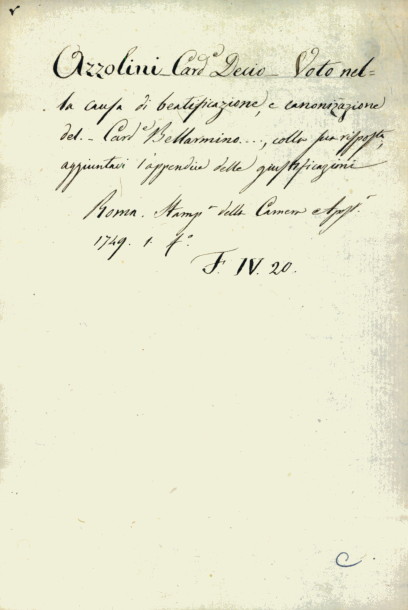 Azzolini Card.e Decio Voto nel=
la causa di beatificazione, e canonizazione
del Card.e Bellarmino..., colla sua risposta,
aggiuntavi l'appendice delle giustificazioni
Roma. Stamp.a della Camera Apost.a
1749. 1. f.o
F. IV. 20.
C